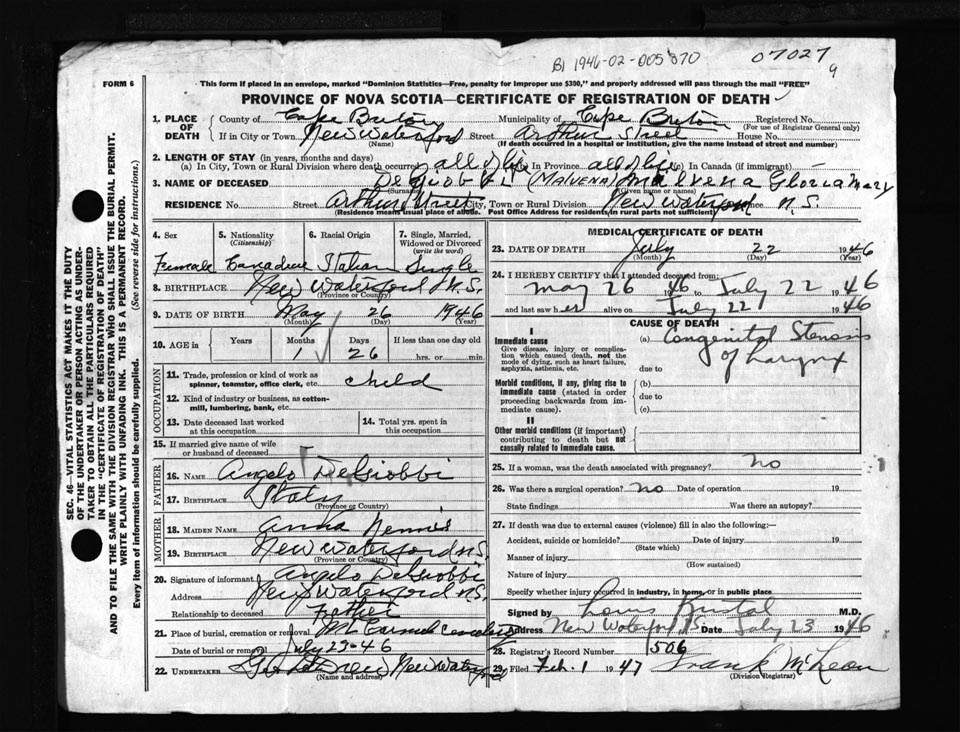 B1 1946-02-005070
07027
9
FORM 6
This form if placed in an envelope, marked "Dominion Statistics—Free, penalty for improper use $300," and properly addressed will pass through the mail "FREE"
PROVINCE OF NOVA SCOTIA—CERTIFICATE OF REGISTRATION OF DEATH
1. PLACE OF DEATH County of Cape Breton Municipality of Cape Breton Registered No.
(For use of Registrar General only)
If in City or Town New Waterford Street Arthur Street House No.
(Name) (If death occurred in a hospital or institution, give the name instead of street and number)
2. LENGTH OF STAY (in years, months and days)
(a) In City, Town or Rural Division where death occurred all of life In Province all of life (c) In Canada (if immigrant)
3. NAME OF DECEASED (MALVENA) Malvena Gloria Mary
(Surname) (Given name or names)
RESIDENCE No. Street Arthur Street City, Town or Rural Division New Waterford Province N.S.
(Residence means usual place of abode. Post Office Address for residents in rural parts not sufficient)
4. Sex 5. Nationality (Citizenship) 6. Racial Origin 7. Single, Married, Widowed or Divorced (write the word)
Female Canadian Italian Single
8. BIRTHPLACE New Waterford N.S.
(Province or Country)
9. DATE OF BIRTH May 26 1946
(Month) (Day) (Year)
10. AGE in Years Months Days If less than one day old
1 26 hrs. or min.
OCCUPATION
11. Trade, profession or kind of work as spinner, teamster, office clerk, etc. child
12. Kind of industry or business, as cotton-mill, lumbering, bank, etc.
13. Date deceased last worked at this occupation 14. Total yrs. spent in this occupation
15. If married give name of wife or husband of deceased
FATHER
16. NAME Angelo DelGiobbi
17. BIRTHPLACE Italy
(Province or Country)
MOTHER
18. MAIDEN NAME Anna
19. BIRTHPLACE New Waterford N.S.
(Province or Country)
20. Signature of informant Angelo DelGiobbi
Address New Waterford N.S.
Relationship to deceased Father
21. Place of burial, cremation or removal Mt Carmel Cemetery
Date of burial or removal July 23-46
22. UNDERTAKER New Waterford
(Name and address)
MEDICAL CERTIFICATE OF DEATH
23. DATE OF DEATH July 22 1946
(Month) (Day) (Year)
24. I HEREBY CERTIFY that I attended deceased from:
May 26 1946 to July 22 1946
and last saw her alive on July 22 1946
CAUSE OF DEATH
I
Immediate cause (a) Congenital Stenosis of Larynx
Give disease, injury or complication which caused death, not the mode of dying, such as heart failure, asphyxia, asthenia, etc.
due to
Morbid conditions, if any, giving rise to immediate cause (stated in order proceeding backwards from immediate cause). (b)
due to
(c)
II
Other morbid conditions (if important) contributing to death but not causally related to immediate cause.
25. If a woman, was the death associated with pregnancy? no
26. Was there a surgical operation? no Date of operation 19
State findings Was there an autopsy?
27. If death was due to external causes (violence) fill in also the following:—
Accident, suicide or homicide? Date of injury 19
(State which)
Manner of injury
(How sustained)
Nature of injury
Specify whether injury occurred in industry, in home, or in public place
Signed by M.D.
Address New Waterford NS Date July 23 1946
28. Registrar's Record Number 506
29. Filed Feb. 1 1947 Frank McLean
(Division Registrar)
SEC. 46—VITAL STATISTICS ACT MAKES IT THE DUTY
OF THE UNDERTAKER OR PERSON ACTING AS UNDER-
TAKER TO OBTAIN ALL THE PARTICULARS REQUIRED
IN THE "CERTIFICATE OF REGISTRATION OF DEATH"
AND TO FILE THE SAME WITH THE DIVISION REGISTRAR WHO SHALL ISSUE THE BURIAL PERMIT.
WRITE PLAINLY WITH UNFADING INK. THIS IS A PERMANENT RECORD.
Every item of information should be carefully supplied. (See reverse side for instructions.)